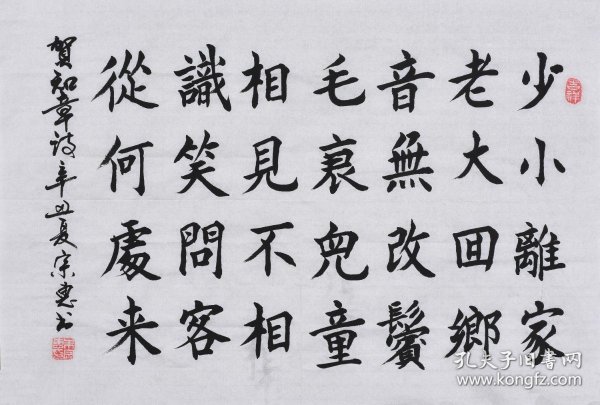 少小離家
老大囬鄉
音無改鬢
毛衰兒童
相見不相
識笑問客
從何處来
賀知章詩辛丑夏宗惠书
吉祥
孔夫子旧书网
www.kongfz.com